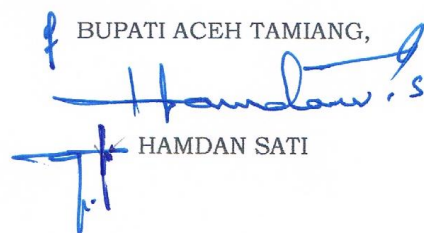 BUPATI ACEH TAMIANG,
Hamdan.s
HAMDAN SATI